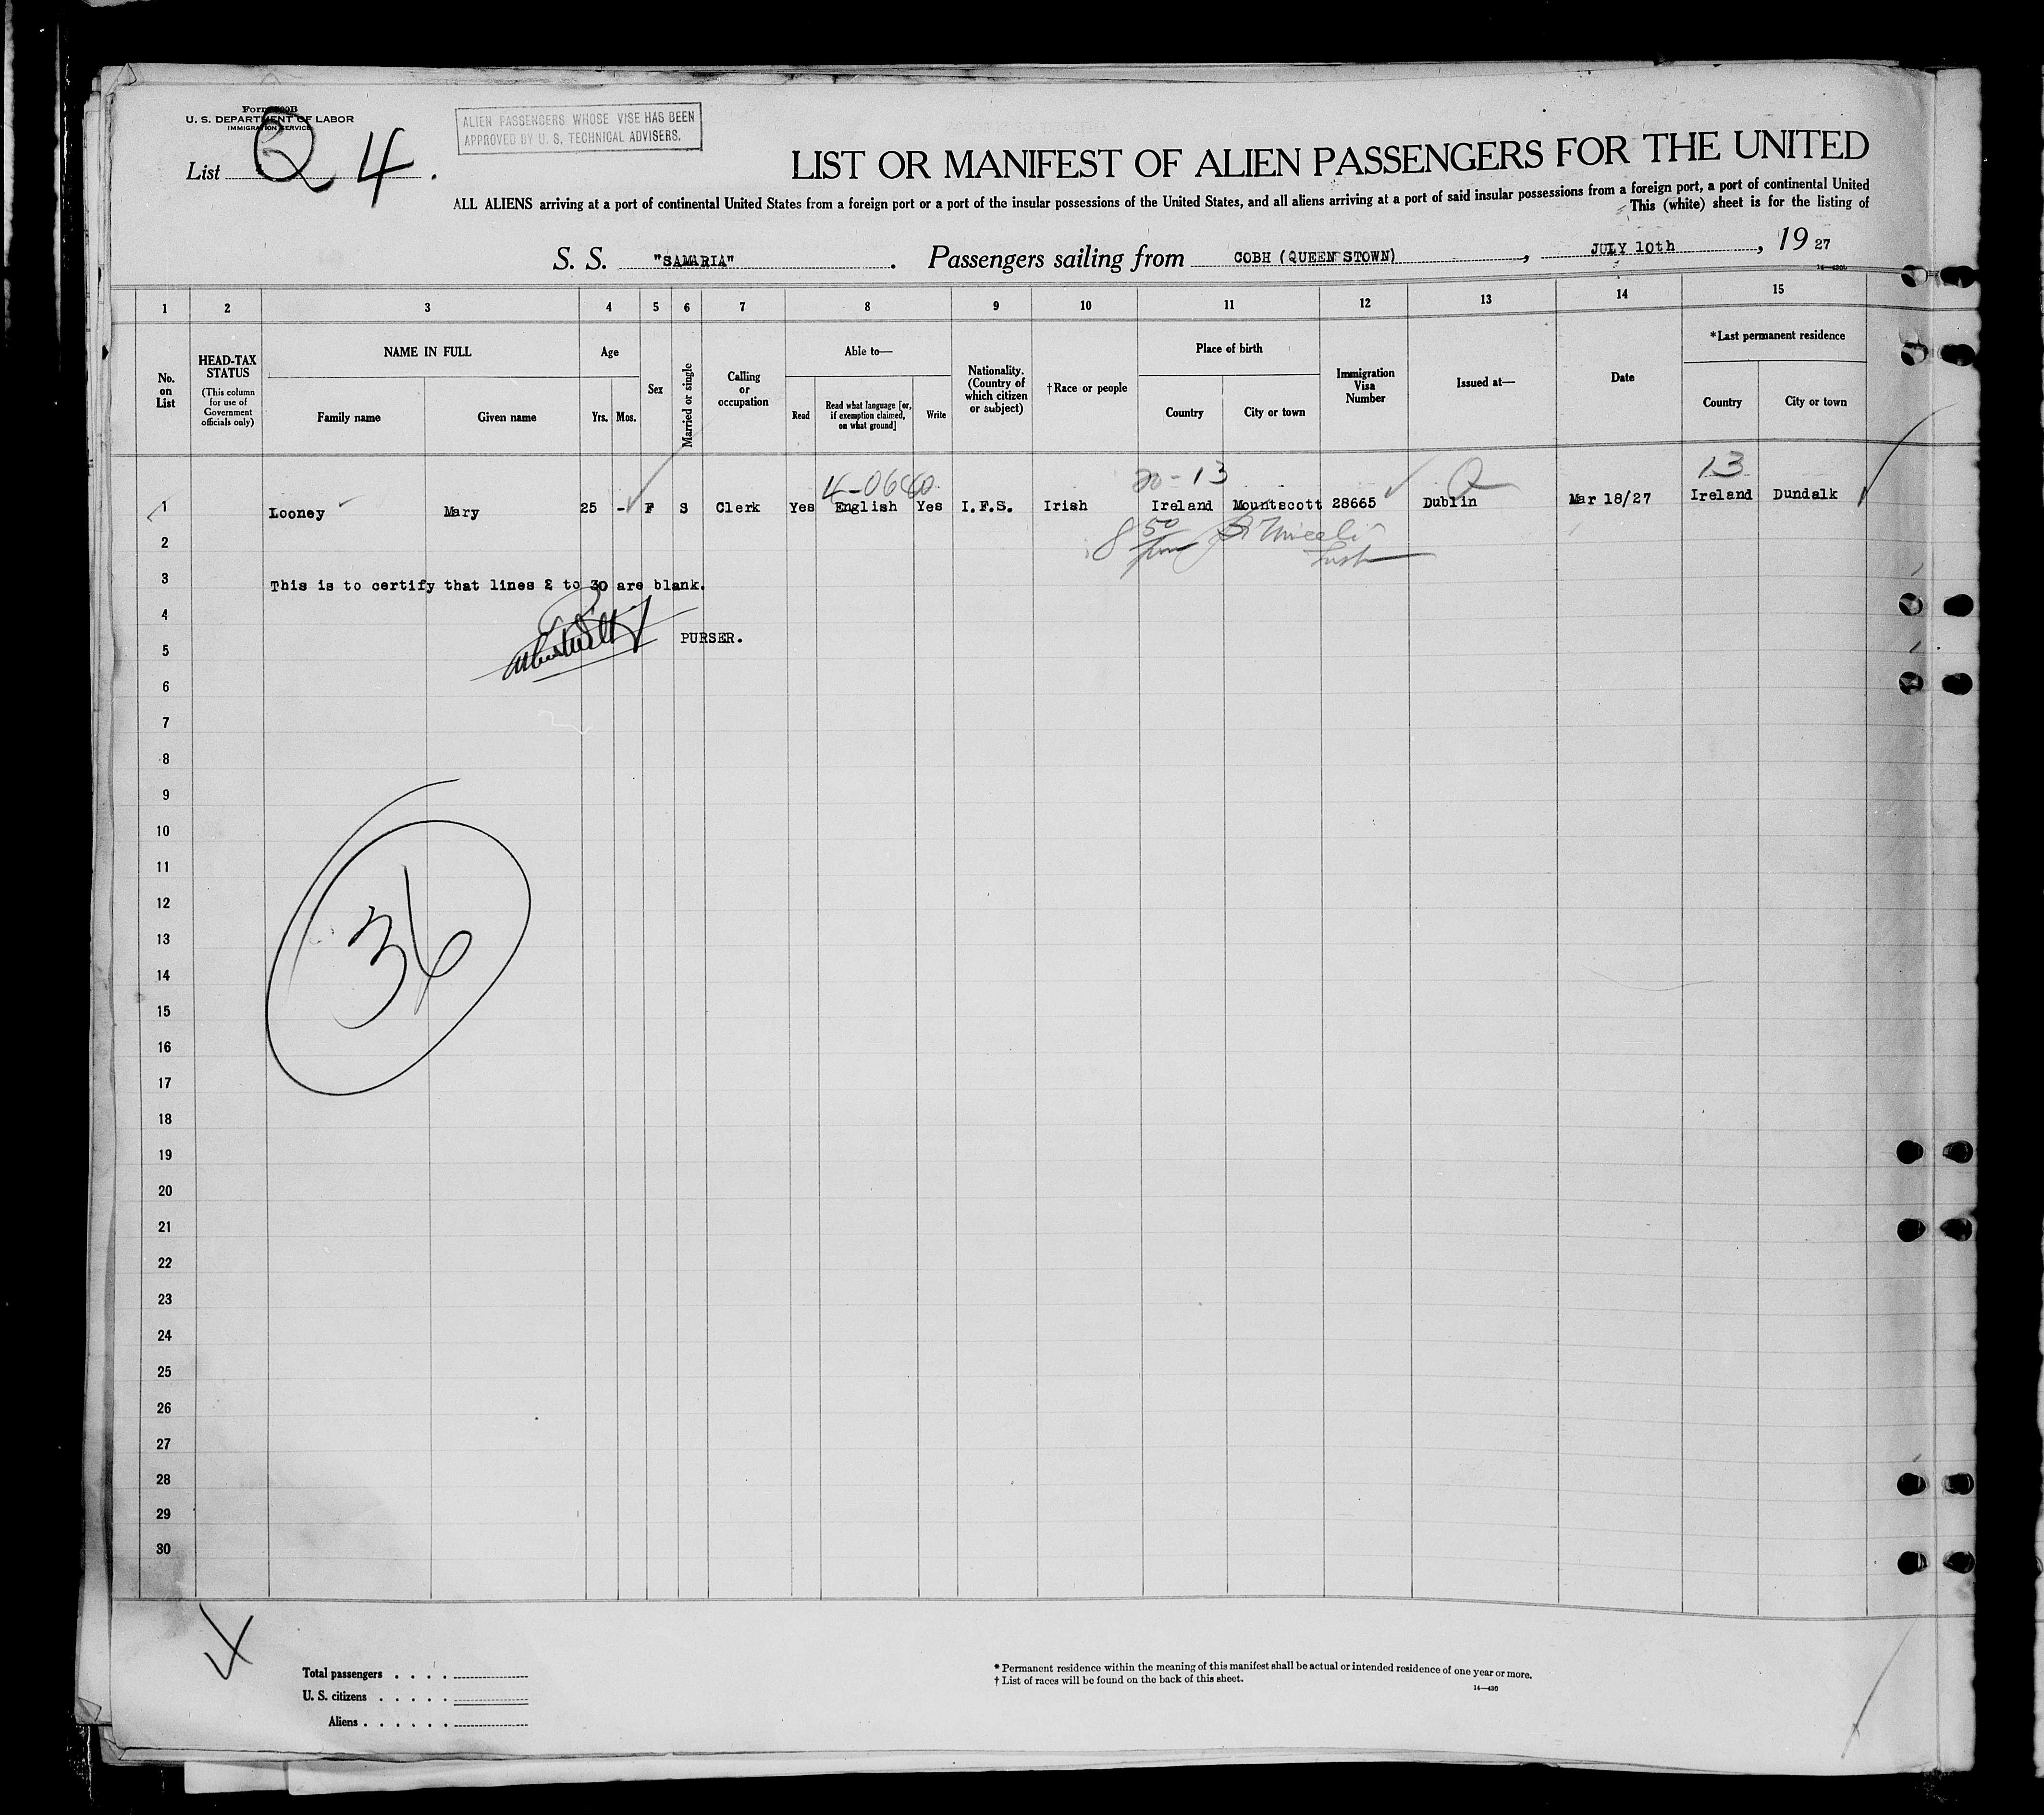 U. S. DEPARTMENT OF LABOR
IMMIGRATION SERVICE
List Q 4 .
ALIEN PASSENGERS WHOSE VISE HAS BEEN
APPROVED BY U. S. TECHNICAL ADVISERS.
LIST OR MANIFEST OF ALIEN PASSENGERS FOR THE UNITED
ALL ALIENS arriving at a port of continental United States from a foreign port or a port of the insular possessions of the United States, and all aliens arriving at a port of said insular possessions from a foreign port, a port of continental United
This (white) sheet is for the listing of
S. S. "SAMARIA" . Passengers sailing from COBH (QUEENSTOWN) , JULY 10th , 19 27
1 2 3 4 5 6 7 8 9 10 11 12 13 14 15
No. on List
HEAD-TAX STATUS
(This column for use of Government officials only)
NAME IN FULL
Family name Given name
Age
Yrs. Mos.
Sex
Married or single
Calling or occupation
Able to—
Read
Read what language [or, if exemption claimed, on what ground]
Write
Nationality. (Country of which citizen or subject)
†Race or people
Place of birth
Country City or town
Immigration Visa Number
Issued at—
Date
*Last permanent residence
Country City or town
20-13
13
1 Looney Mary 25 - F S Clerk Yes English Yes I.F.S. Irish Ireland Mountscott 28665 Dublin Mar 18/27 Ireland Dundalk
2
3 This is to certify that lines 2 to 30 are blank.
4
PURSER.
5
6
7
8
9
10
11
12
13
36
14
15
16
17
18
19
20
21
22
23
24
25
26
27
28
29
30
Total passengers . . . .
U. S. citizens . . . . .
Aliens . . . . . .
* Permanent residence within the meaning of this manifest shall be actual or intended residence of one year or more.
† List of races will be found on the back of this sheet.
14—430